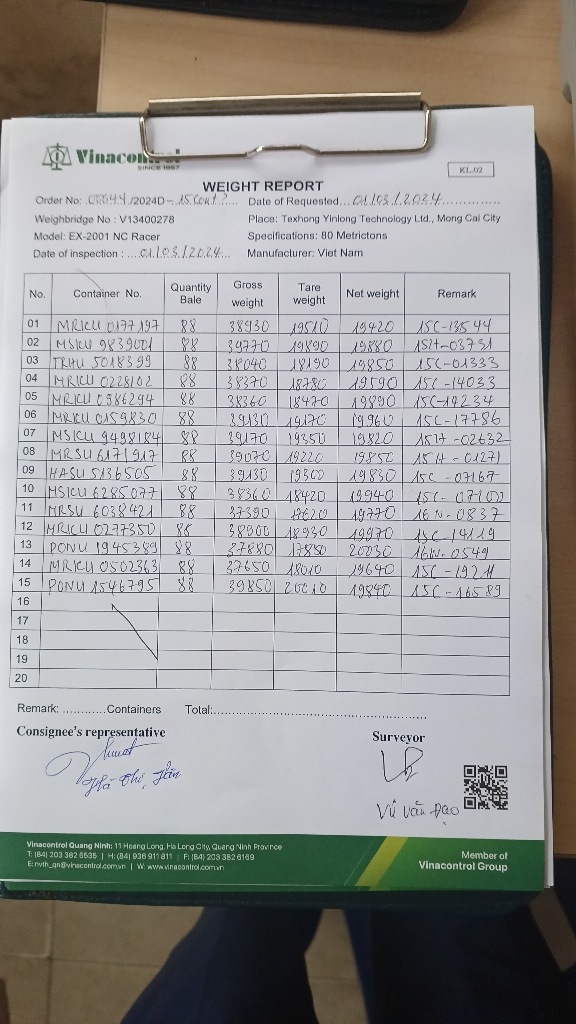 Vinacontrol
SINCE 1957
KL.02
WEIGHT REPORT
Order No: 08044/2024D- 15 Cont Date of Requested... 01/03/2024
Weighbridge No : V13400278 Place: Texhong Yinlong Technology Ltd., Mong Cai City
Model: EX-2001 NC Racer Specifications: 80 Metrictons
Date of inspection : ... 01/03/2024... Manufacturer: Viet Nam
No. Container No. Quantity Bale Gross weight Tare weight Net weight Remark
01 MRKU 0177197 88 38930 19510 19420 15C-13544
02 MSKU 9839001 88 39770 19890 19880 15H-03731
03 TRHU 5018399 88 38040 18190 19850 15C-01333
04 MRKU 0228102 88 38370 18780 19590 15C-14033
05 MRKU 0986294 88 38360 18470 19890 15C-14234
06 MRKU 0159830 88 39130 19170 19960 15C-17786
07 MSKU 9498184 88 39170 19350 19820 15H-02632
08 MRSU 6171917 88 39070 19220 19850 15H-01271
09 HASU 5136505 88 39130 19300 19830 15C-07167
10 MSKU 6285077 88 38360 18420 19940 15C-07102
11 MRSU 6038421 88 37390 17620 19770 16N-0837
12 MRKU 0277350 88 38900 18930 19970 15C-14119
13 PONU 1945389 88 37880 17850 20030 16N-0549
14 MRKU 0502363 88 37650 18010 19640 15C-19211
15 PONU 1546795 88 39850 20010 19840 15C-16589
16
17
18
19
20
Remark: ............Containers Total:............
Consignee's representative Surveyor
Hà Thị Hân
Vũ Văn Đạo
Vinacontrol Quang Ninh: 11 Hoang Long, Ha Long City, Quang Ninh Province
T: (84) 203 382 5535 | H: (84) 936 911 811 | F: (84) 203 382 6169
E: nvth_qn@vinacontrol.com.vn | W: www.vinacontrol.com.vn
Member of
Vinacontrol Group